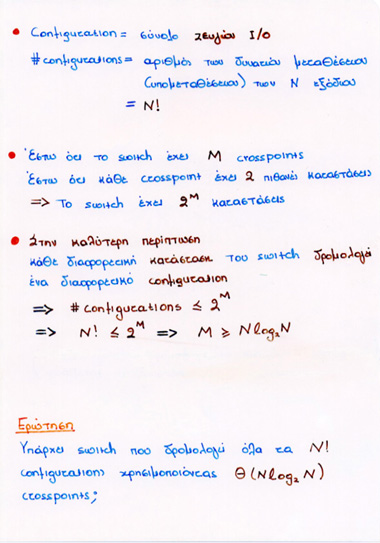 • Configuration = σύνολο ζευγών I/O
# configurations = αριθμός των δυνατών μεταθέσεων
(υπομεταθέσεων) των N εξόδων
= N!
• Έστω ότι το switch έχει M crosspoints
Έστω ότι κάθε crosspoint έχει 2 πιθανές καταστάσεις
=> Το switch έχει 2^M καταστάσεις
• Στην καλύτερη περίπτωση
κάθε διαφορετική κατάσταση του switch δρομολογεί
ένα διαφορετικό configuration
=> # configurations ≤ 2^M
=> N! ≤ 2^M => M ≥ Nlog₂N
Ερώτηση
Υπάρχει switch που δρομολογεί όλα τα N!
configurations χρησιμοποιώντας Θ(Nlog₂N)
crosspoints;